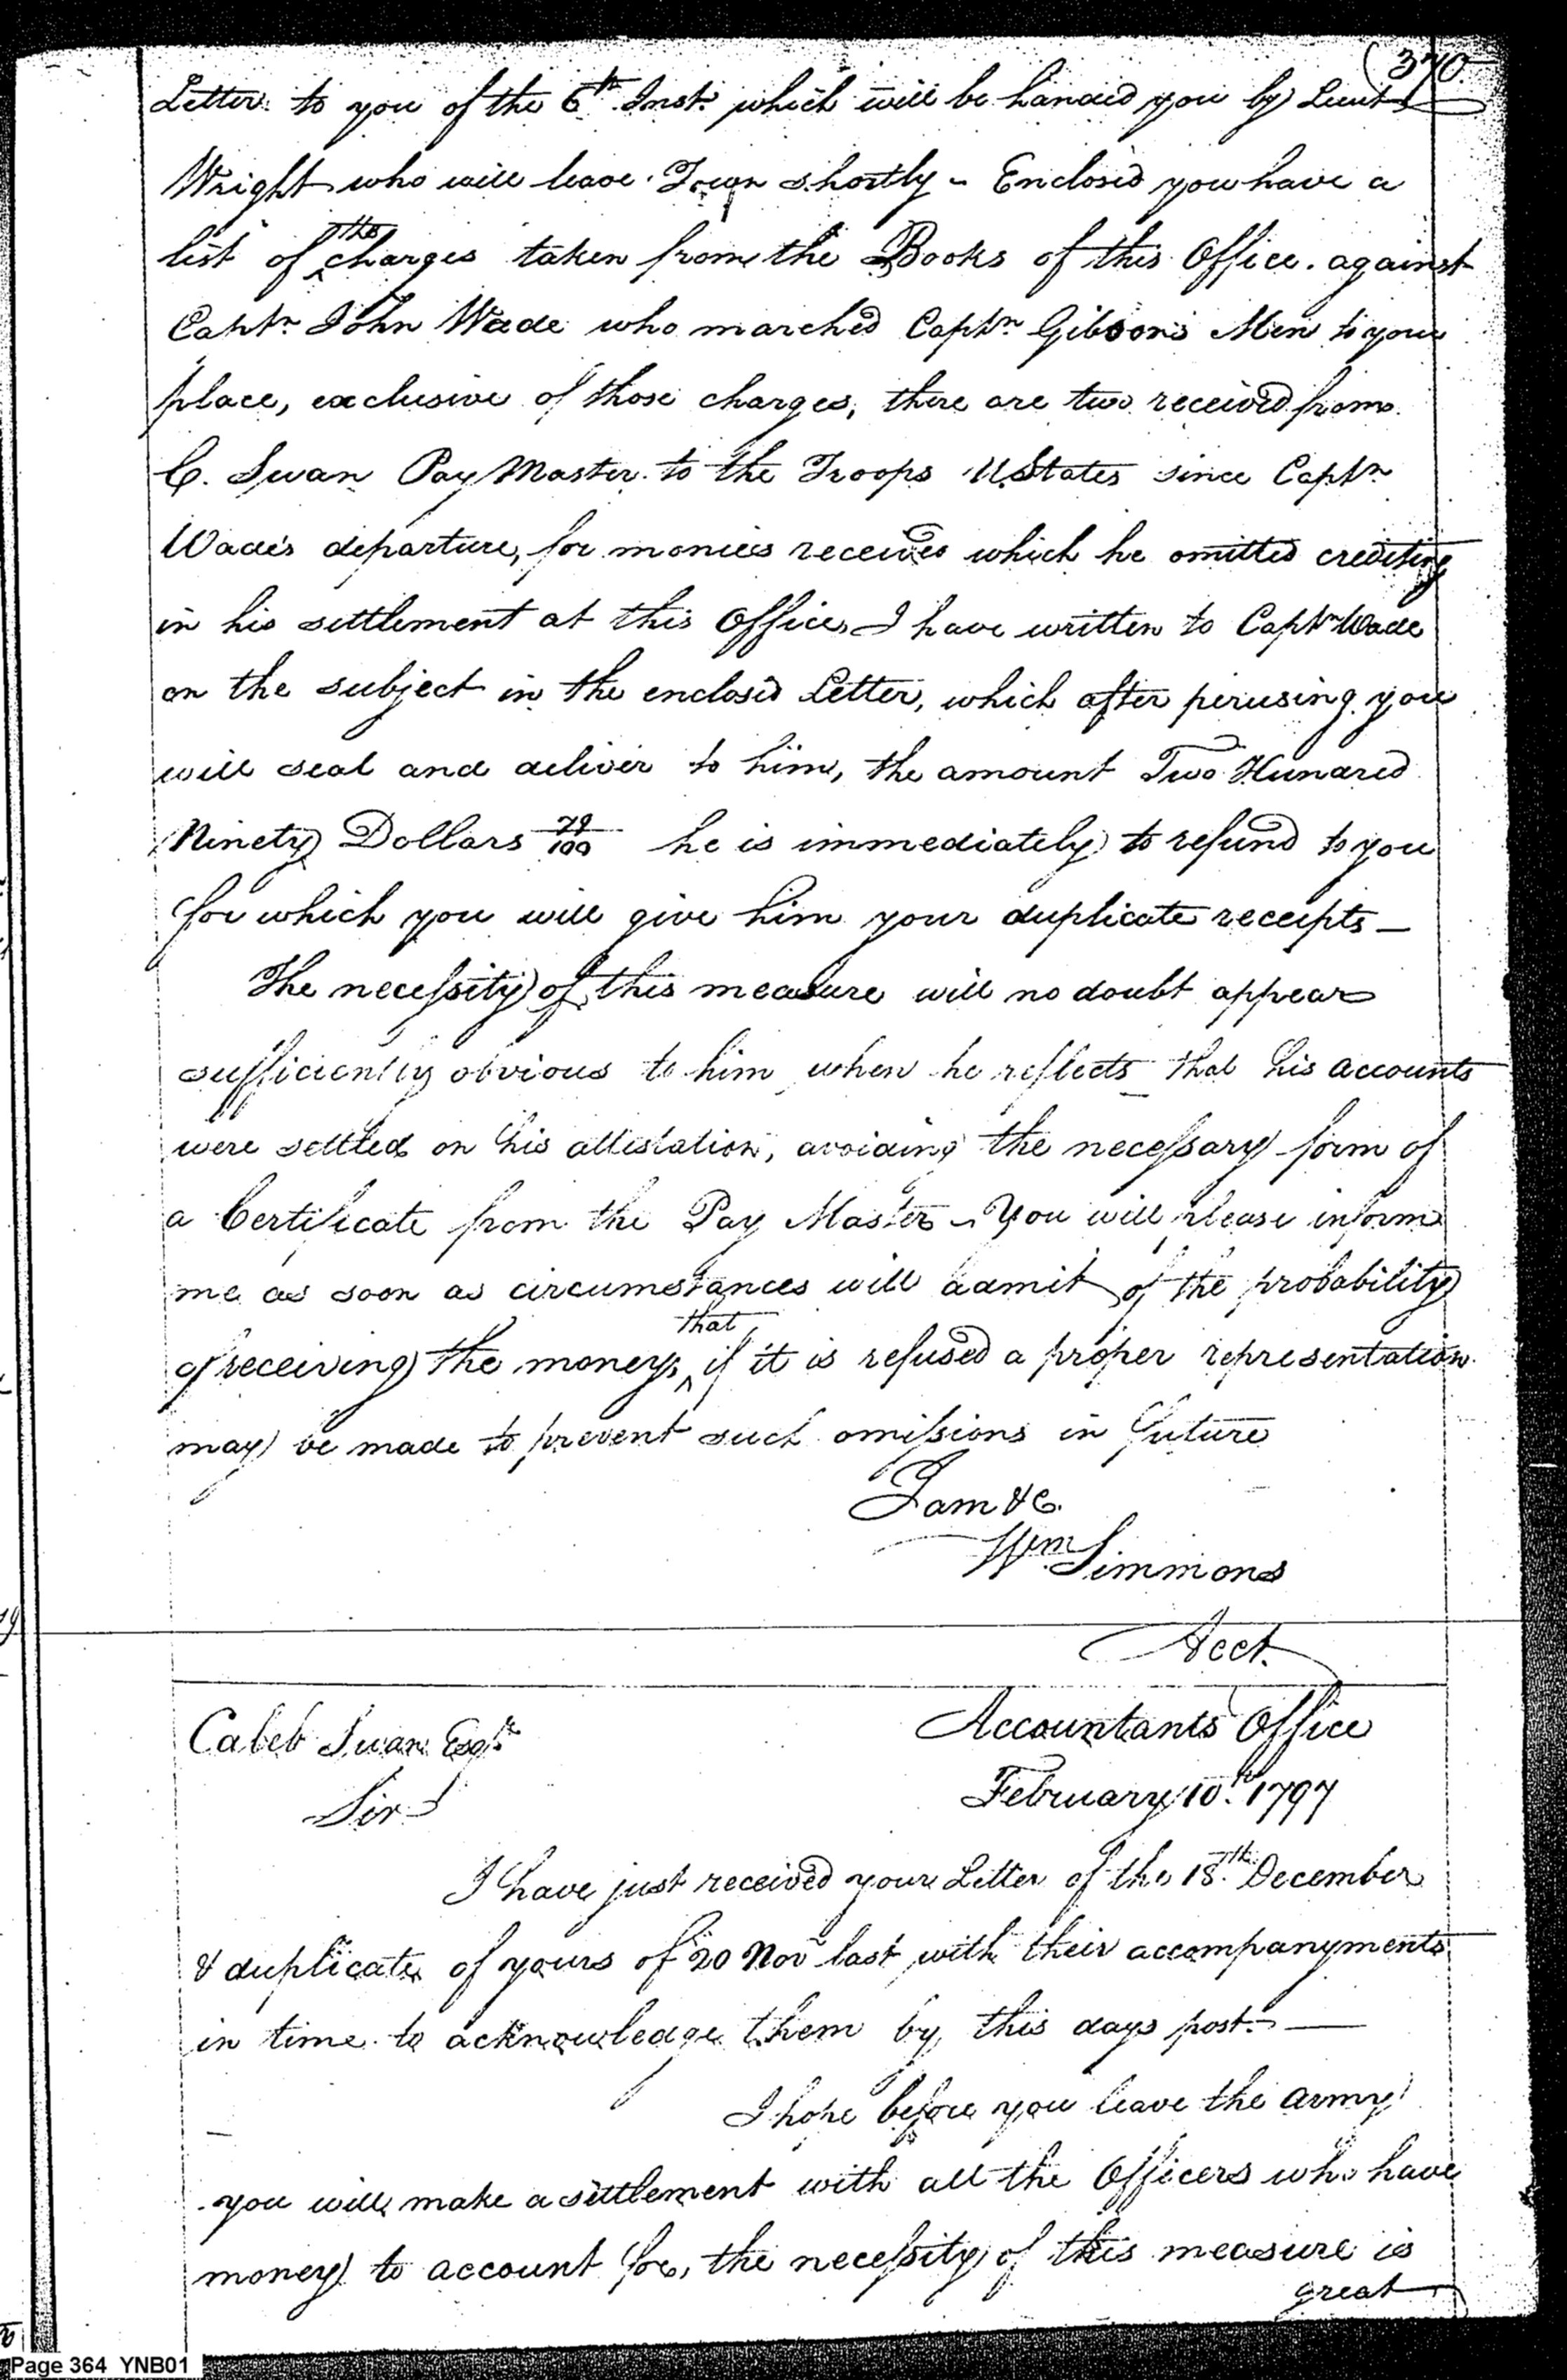 (370
Letter to you of the 6th Inst. which will be handed you by Lieut
Wright who will leave Town shortly - Enclosed you have a
list of the charges taken from the Books of this Office against
Captn John Wade who marched Captn Gibson's Men to your
place, exclusive of those charges, there are two received from
C. Swan Pay Master to the Troops U States since Captn
Wade's departure, for monies received which he omitted crediting
in his settlement at this Office, I have written to Captn Wade
on the subject in the enclosed Letter, which after perusing you
will seal and deliver to him, the amount Two Hundred
Ninety Dollars 79/100 he is immediately to refund to you
for which you will give him your duplicate receipts —
The necessity of this measure will no doubt appear
sufficiently obvious to him when he reflects that his accounts
were settled on his attestation, avoiding the necessary form of
a Certificate from the Pay Master - You will please inform
me as soon as circumstances will admit of the probability
of receiving the money, that if it is refused a proper representation
may be made to prevent such omissions in future
I am &c.
Wm Simmons
Acct.
Caleb Swan Esqr.
Accountants Office
Sir
February 10th 1797
I have just received your Letter of the 18th December
& duplicate of yours of 20 Novr last with their accompanyments
in time to acknowledge them by this days post. —
I hope before you leave the army
you will make a settlement with all the Officers who have
money to account for, the necessity of this measure is
great
Page 364 YNB01